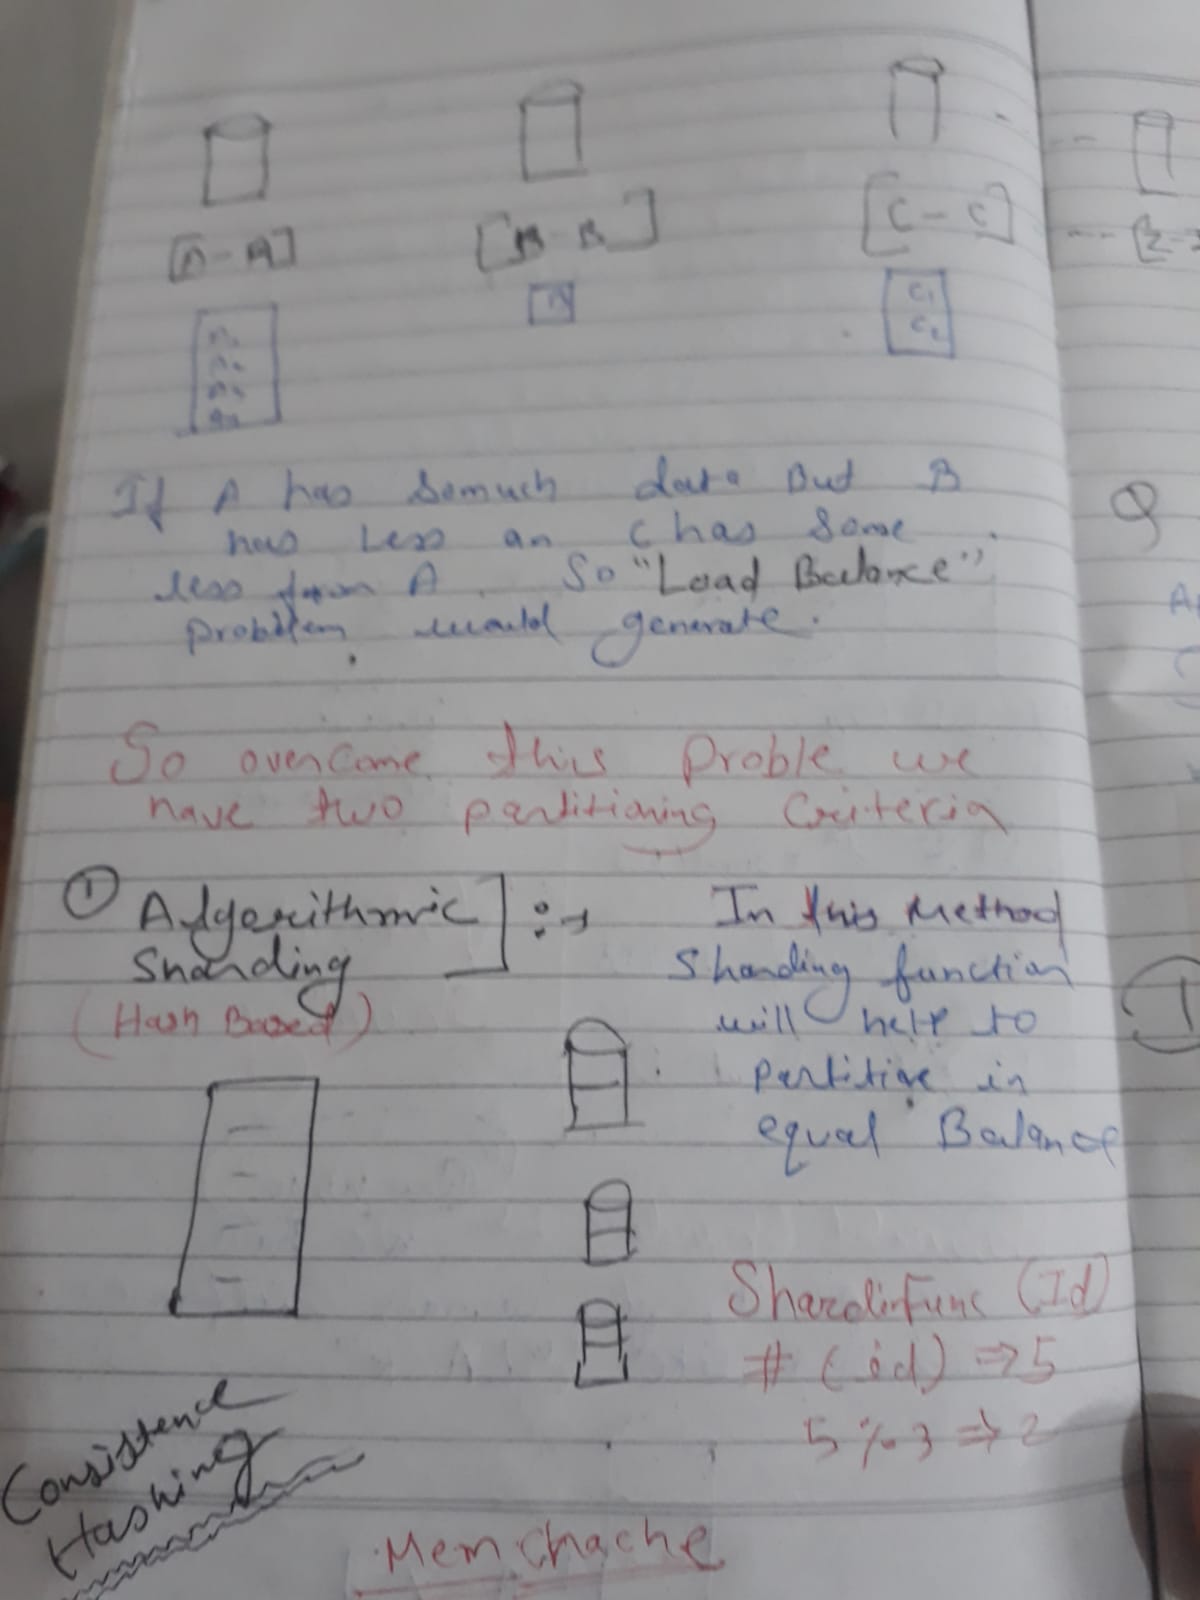 [A-A] [B-B] [C-C] --- [Z-
C1
C2
If A has Somuch data But B
has Less an C has Some
less from A. So "Load Balance"
problem would generate.
So overcome this Proble we
have two partitioning Criteria
① Algorithmic ] :→ In this Method
Sharding Sharding function
(Hash Based) will help to
Partition in
equal Balance
ShardinFunc (Id)
# (id) ⇒ 5
5 % 3 ⇒ 2
Consistence
Hashing
Mem Chache